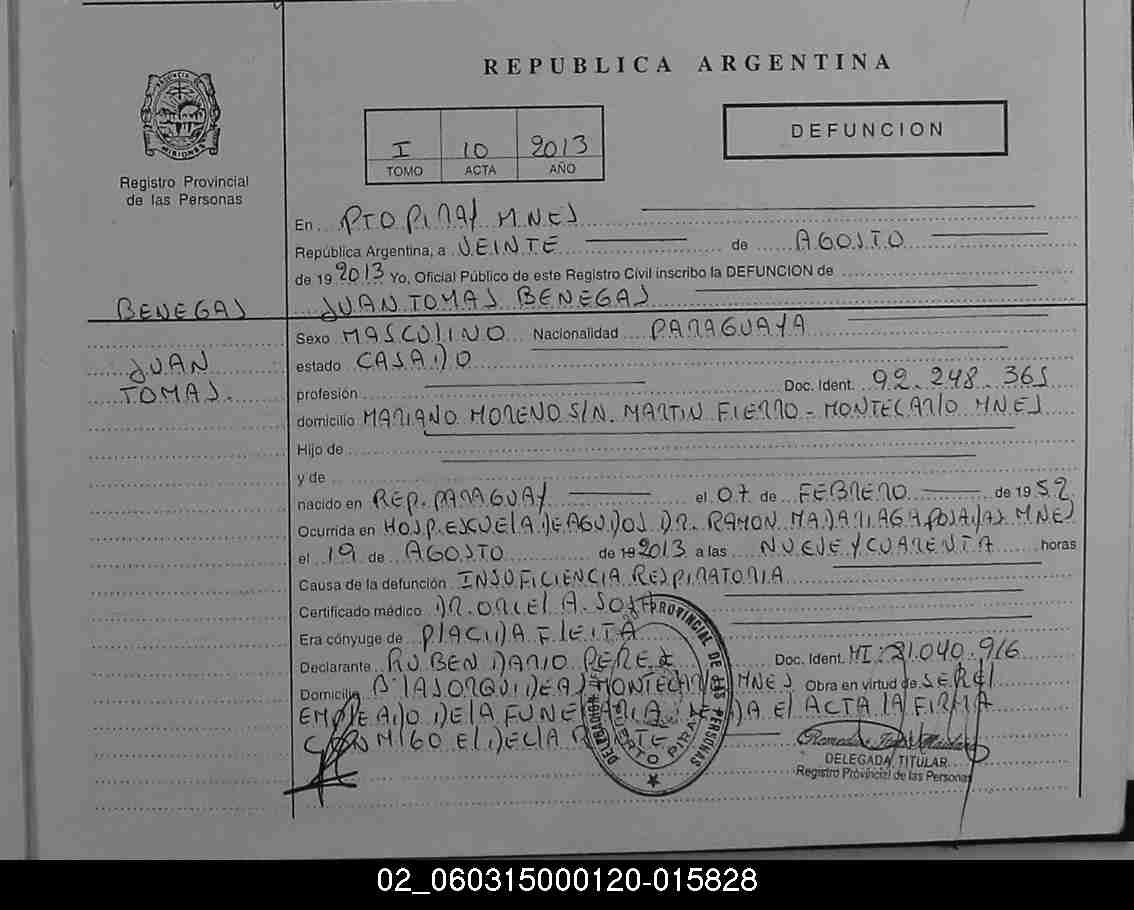 REPUBLICA ARGENTINA
PROVINCIA DE MISIONES
Registro Provincial
de las Personas
I 10 2013
TOMO ACTA AÑO
DEFUNCION
En PTO PIRAY MNES
República Argentina, a VEINTE de AGOSTO
de 19 2013 Yo, Oficial Público de este Registro Civil inscribo la DEFUNCION de
BENEGAS JUAN TOMAS BENEGAS
Sexo MASCULINO Nacionalidad PARAGUAYA
JUAN estado CASADO
TOMAS. profesión Doc. Ident. 92.248.365
domicilio MARIANO MORENO S/N. MARTIN FIERRO - MONTECARLO MNES
Hijo de
y de
nacido en REP. PARAGUAY el 07 de FEBRERO de 19 52
Ocurrida en HOSP. ESCUELA DE AGUDOS DR. RAMON MADARIAGA POSADAS MNES
el 19 de AGOSTO de 19 2013 a las NUEVE Y CUARENTA horas
Causa de la defunción INSUFICIENCIA RESPIRATORIA
Certificado médico DR. A. SOSA
Era cónyuge de PLACIDA FLEITA
Declarante RUBEN DARIO PEREZ Doc. Ident. MI: 21.040.916
Domicilio Bº LAS ORQUIDEAS MONTECARLO MNES Obra en virtud de SER EL
EMPLEADO DE LA FUNERARIA LEIDA EL ACTA LA FIRMA
CONMIGO EL DECLARANTE
DELEGACION PROVINCIAL DE LAS PERSONAS
PUERTO PIRAY
DELEGADA TITULAR
Registro Provincial de las Personas
02_060315000120-015828